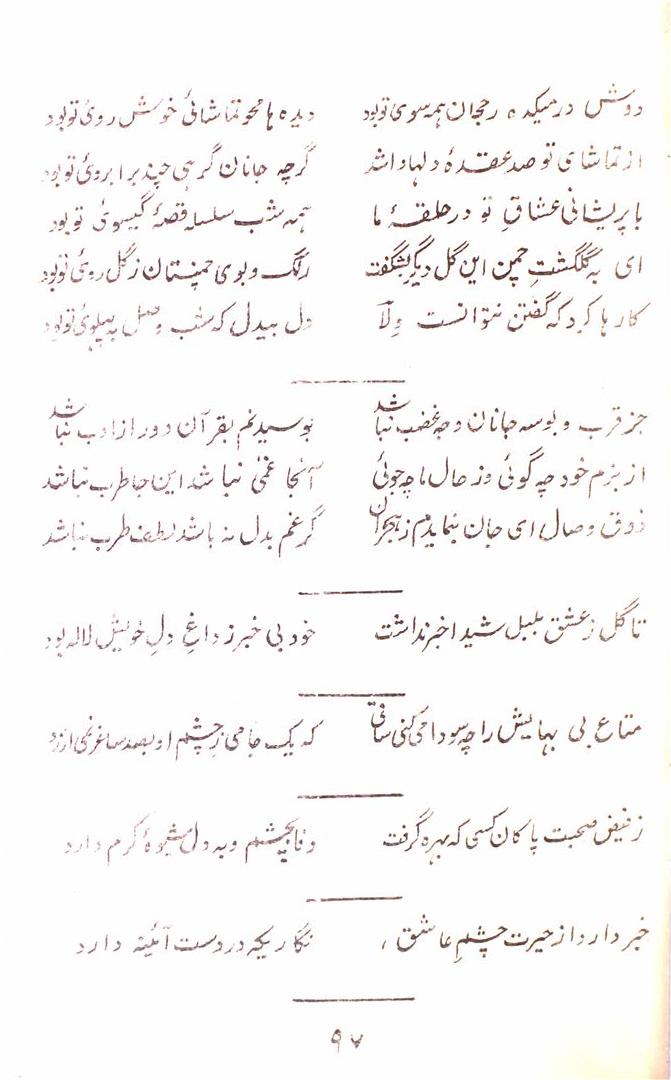 دوش در میکده رجحان همه سوی تو بود دیده ها محو تماشائ خوش روئ تو بود
از تماشای تو صد عقدهٔ دلها وا شد گرچه جانان گرهی چند بر ابروئ تو بود
با پریشانی عشاقِ تو در حلقهٔ ما همه شب سلسله قصهٔ گیسوئ تو بود
ای به گلگشتِ چمن این گل دیگر بشگفت رنگ و بوی چمنستان ز گل روئ تو بود
کارها کرد که گفتن نتوانست ولآ دل بیدل که شب وصل به پهلوئ تو بود
جز قرب و بوسه جانان وجه غضب نباشد بوسیدنم بقرآن دور از ادب نباشد
از بزم خود چه گوئی وز حال ما چه جوئی آنجا غمی نباشد اینجا طرب نباشد
ذوق وصال ای جان بنمایدم ز هجران گر غم بدل نه باشد لطف طرب نباشد
تا گل ز عشق بلبل شیدا خبر نداشت خود بی خبر ز داغِ دلِ خویش لاله بود
متاع بی بهایش را چه سودا می کنی ساقی که یک جامی ز چشم او بصد ساغر نمی ارزد
ز فیض صحبت پاکان کسی که بهره گرفت وفا بچشم و به دل شیوهٔ کرم دارد
خبر دارد از حیرت چشمِ عاشق ، نگاریکه در دست آئینه دارد
۹۷